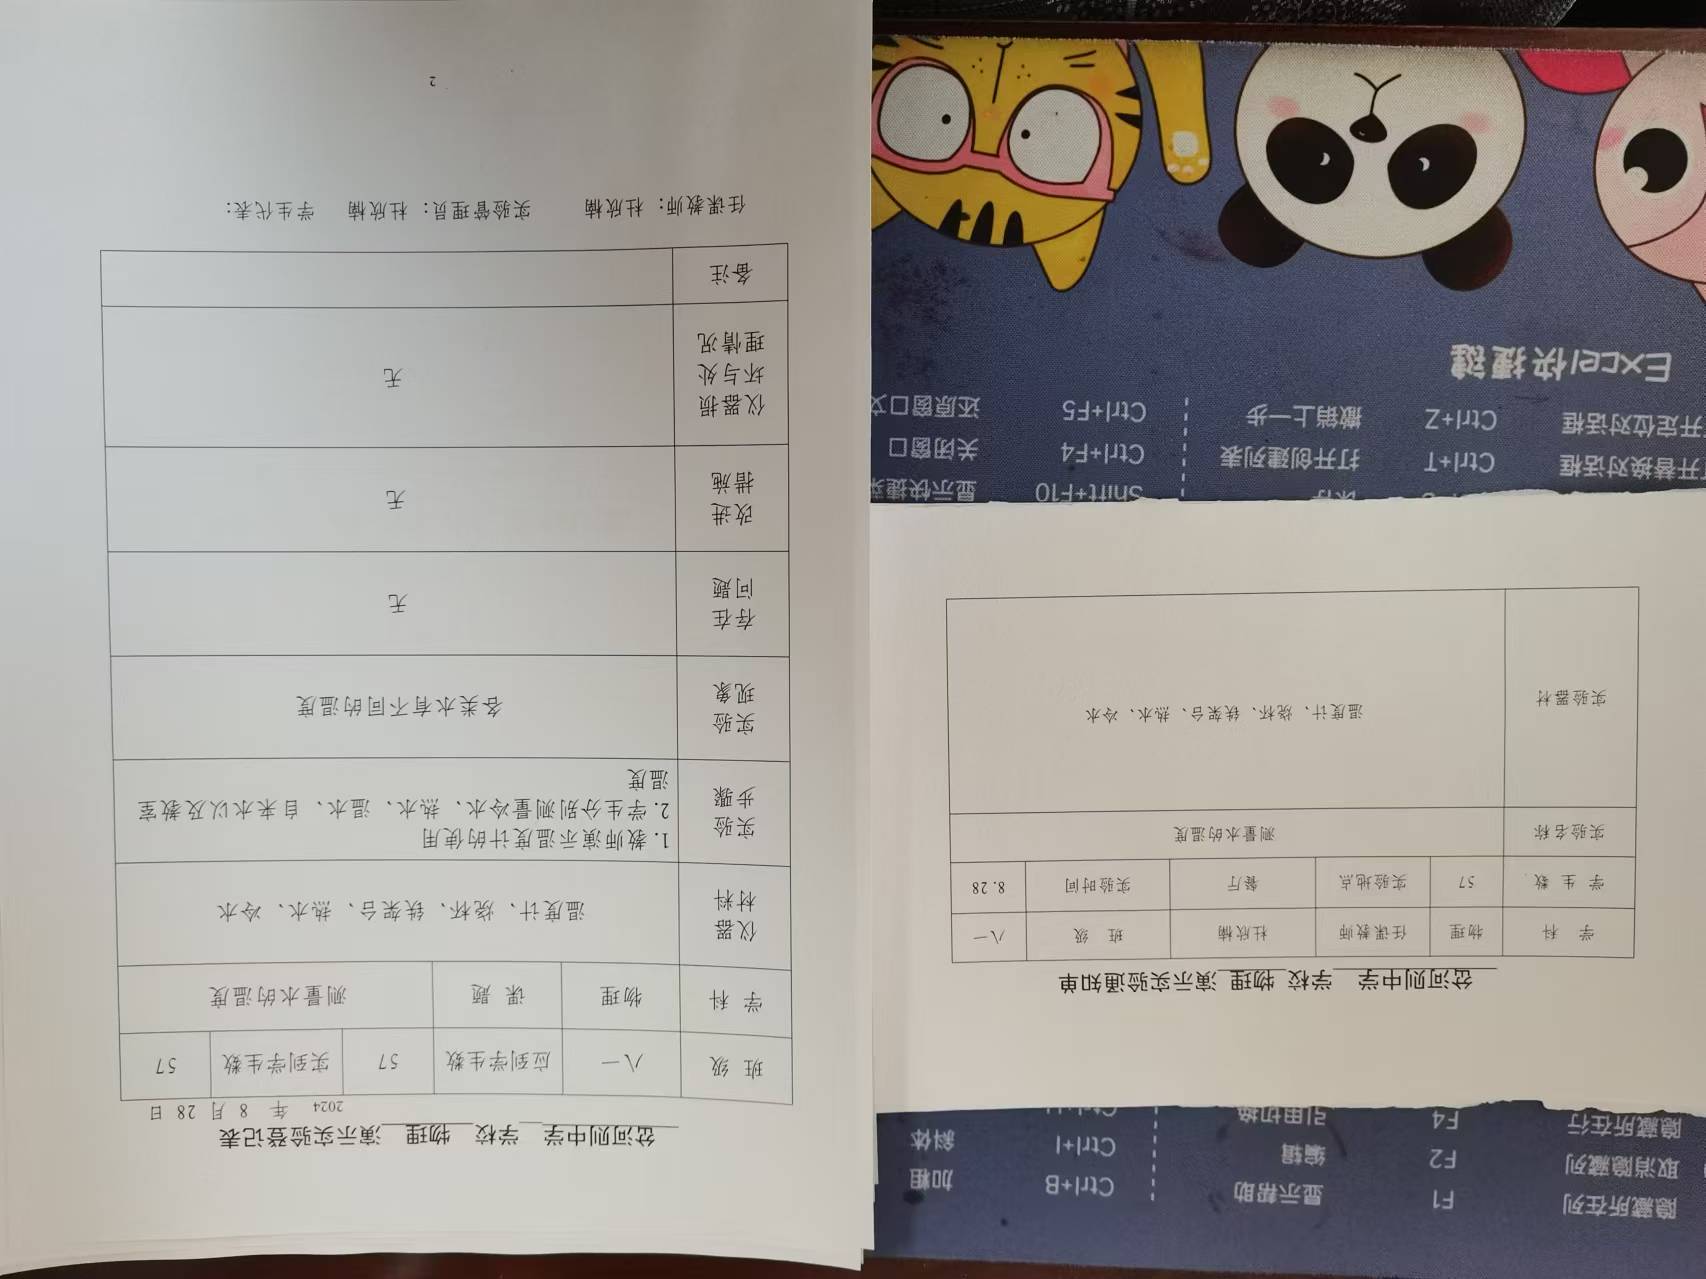 岔河则中学 学校 物理 演示实验登记表
2024 年 8 月 28 日
班 级 八一 应到学生数 57 实到学生数 57
学 科 物理 课 题 测量水的温度
仪器
材料
温度计、烧杯、铁架台、热水、冷水
实验
步骤
1.教师演示温度计的使用
2.学生分别测量冷水、热水、温水、自来水以及教室
温度
实验
现象
各类水有不同的温度
存在
问题
无
改进
措施
无
仪器损
坏与处
理情况
无
备注
任课教师：杜欣楠 实验管理员：杜欣楠 学生代表：
2
隐藏所在列 F1 显示帮助 Ctrl+B 加粗
取消隐藏列 F2 编辑 Ctrl+I 斜体
隐藏所在行 F4 引用切换
岔河则中学 学校 物理 演示实验通知单
学 科 物理 任课教师 杜欣楠 班 级 八一
学 生 数 57 实验地点 餐厅 实验时间 8.28
实验名称 测量水的温度
实验器材 温度计、烧杯、铁架台、热水、冷水
保存 Shift+F10
开替换对话框 Ctrl+T 打开创建列表 Ctrl+F4 关闭窗口
开定位对话框 Ctrl+Z 撤销上一步 Ctrl+F5 还原窗口
Excel快捷键